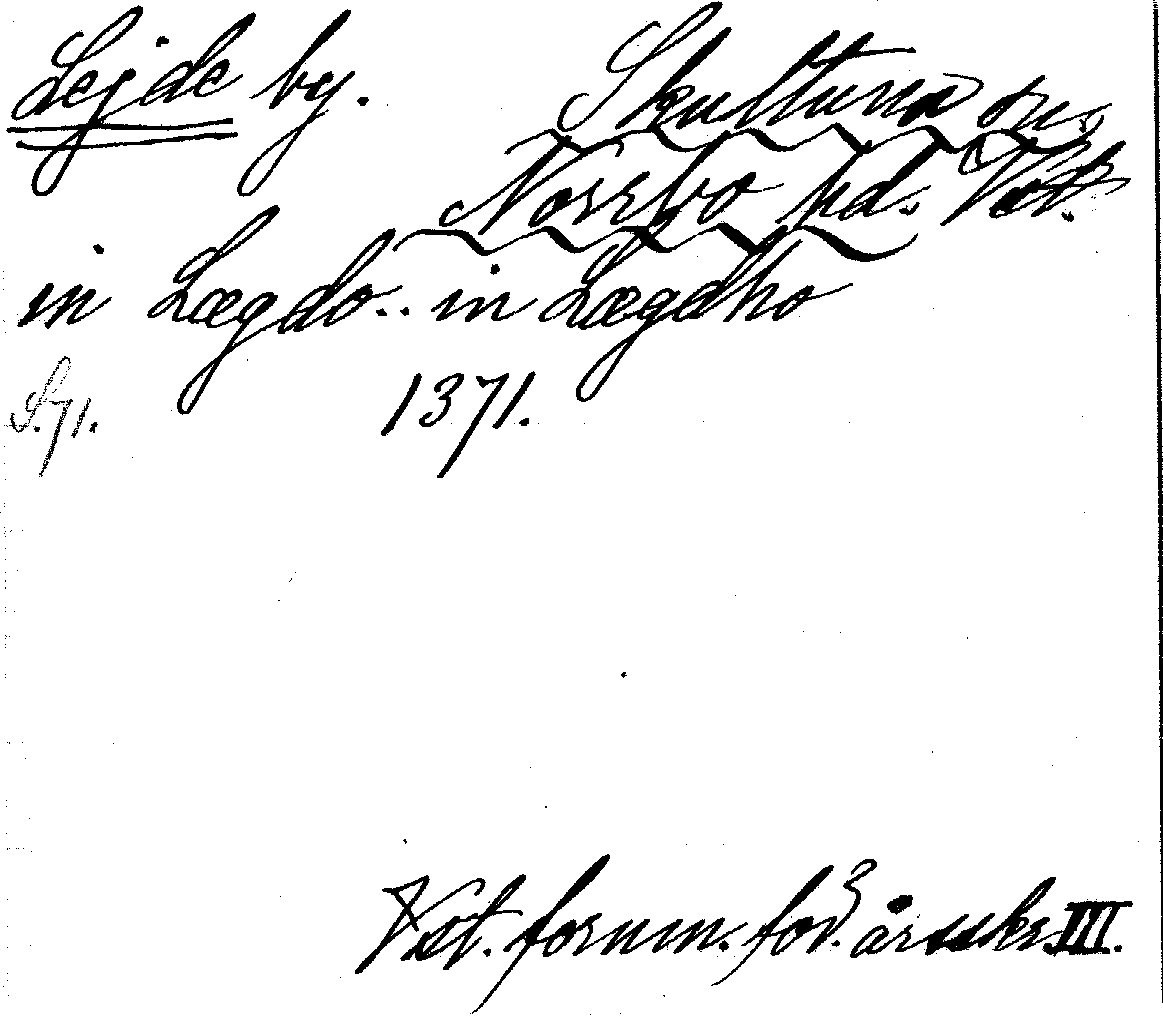 Lejde by. Skultuna sn.
Norrbo hd. Vst.
in Lægdo.. in Lægdho
S. 71. 1371.
Vst. fornm. för. årsskr. III.